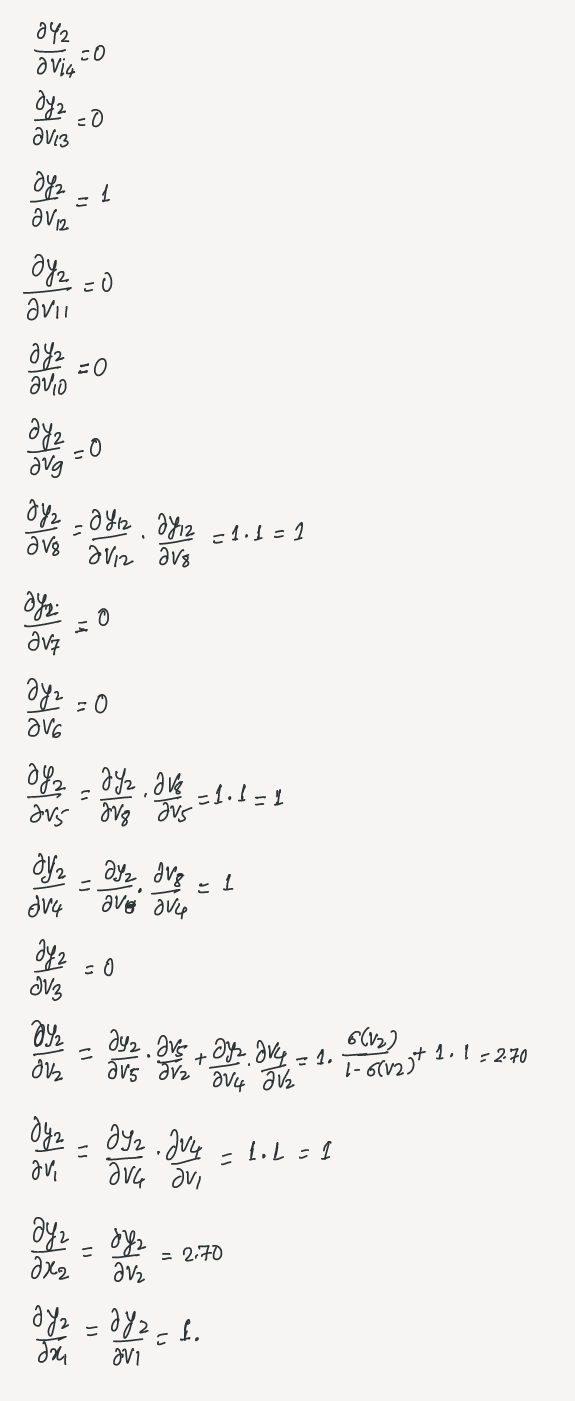 ∂y₂/∂v₁₄ = 0
∂y₂/∂v₁₃ = 0
∂y₂/∂v₁₂ = 1
∂y₂/∂v₁₁ = 0
∂y₂/∂v₁₀ = 0
∂y₂/∂v₉ = 0
∂y₂/∂v₈ = ∂y₁₂/∂v₁₂ · ∂y₁₂/∂v₈ = 1·1 = 1
∂y₂/∂v₇ = 0
∂y₂/∂v₆ = 0
∂y₂/∂v₅ = ∂y₂/∂v₈ · ∂v₈/∂v₅ = 1·1 = 1
∂y₂/∂v₄ = ∂y₂/∂v₈ · ∂v₈/∂v₄ = 1
∂y₂/∂v₃ = 0
∂y₂/∂v₂ = ∂y₂/∂v₅ · ∂v₅/∂v₂ + ∂y₂/∂v₄ · ∂v₄/∂v₂ = 1· σ(v₂)/1-σ(v₂) + 1·1 = 2.70
∂y₂/∂v₁ = ∂y₂/∂v₄ · ∂v₄/∂v₁ = 1·1 = 1
∂y₂/∂x₂ = ∂y₂/∂v₂ = 2.70
∂y₂/∂x₁ = ∂y₂/∂v₁ = 1.